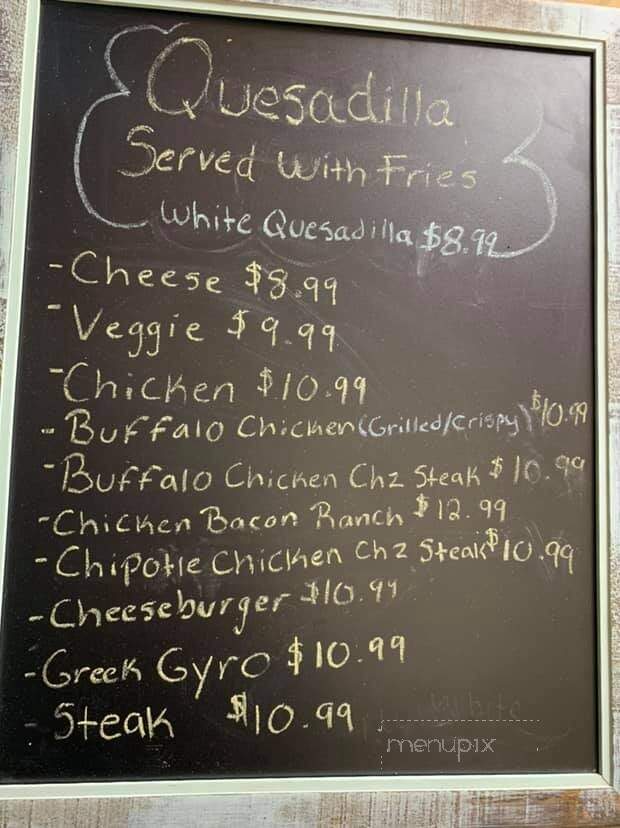 Quesadilla
Served With Fries
White Quesadilla $8.99
-Cheese $8.99
-Veggie $9.99
-Chicken $10.99
-Buffalo Chicken (Grilled/Crispy) $10.99
-Buffalo Chicken Chz Steak $10.99
-Chicken Bacon Ranch $12.99
-Chipotle Chicken Chz Steak $10.99
-Cheeseburger $10.99
-Greek Gyro $10.99
-Steak $10.99
White
menupix